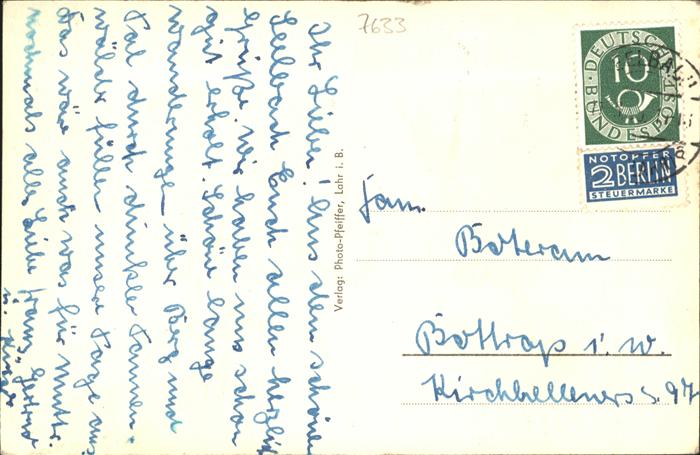 7633
DEUTSCHE
BUNDESPOST
10
SEELBACH
a
NOTOPFER
2 BERLIN
STEUERMARKE
Ihr Lieben! Aus dem schönen
Seelbach Euch allen herzlich
Grüße. Wir haben uns schon
gut erholt. Schöne lange
Wanderungen über Berg und
Tal durch dunkle Tannen-
wälder füllen unsere Tage aus.
Das wäre auch was für Mutti.
Nochmals alles Liebe Franz, Gertrud
u. Kinder
Verlag: Photo-Pfeiffer, Lahr i. B.
Fam.
Boteram
Bottrop i. W.
Kirchhellener S. 97